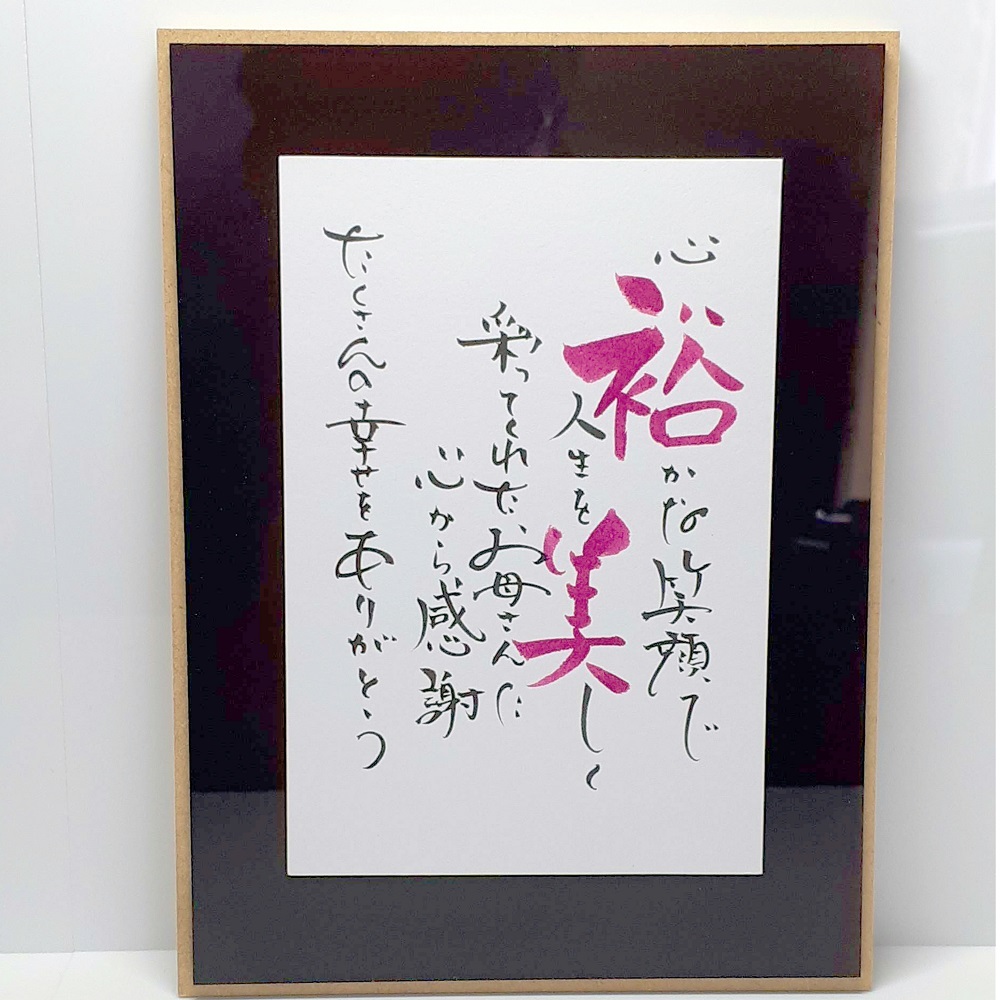 心裕かな笑顔で
人生を美しく
彩ってくれた、お母さんに
心から感謝
たくさんの幸せをありがとう